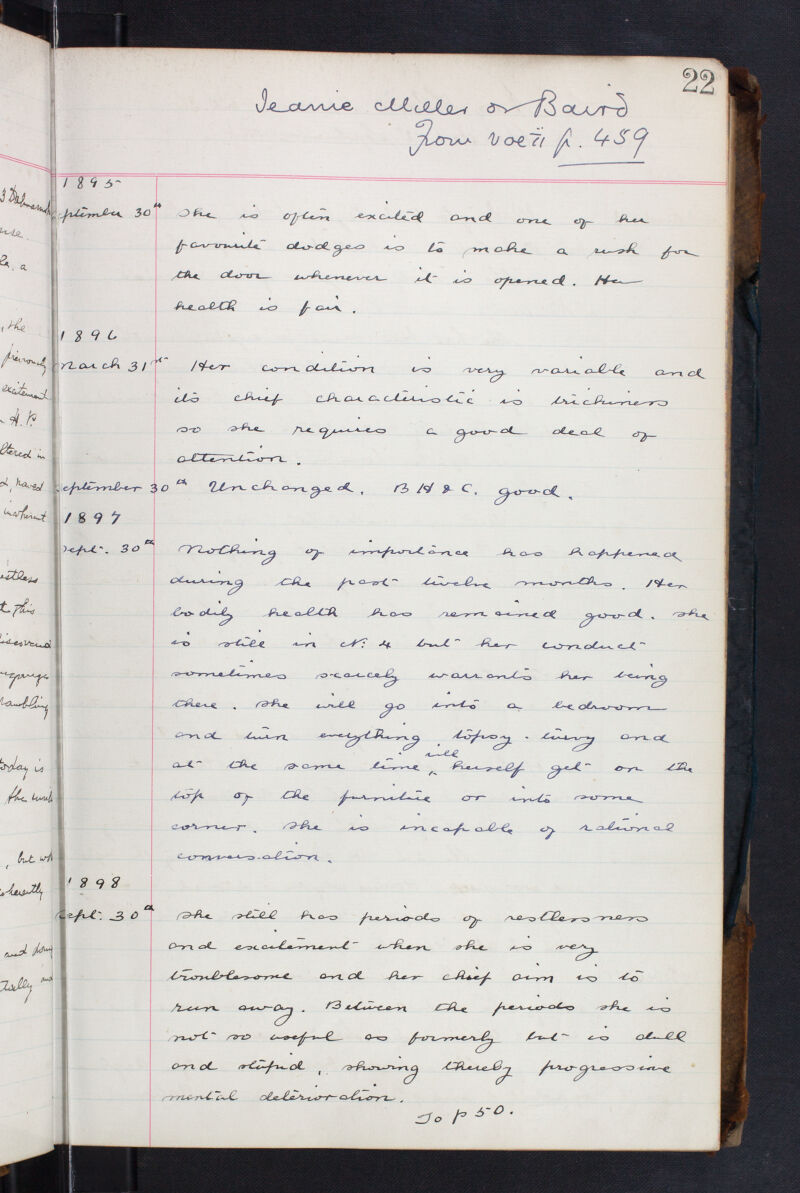 22
Jeanie Miller or Baird
From vol ii p. 459
1895
September 30th She is often excited and one of her
favourite dodges is to make a rush for
the door whenever it is opened. Her
health is fair.
1896
March 31st Her condition is very variable and
its chief characteristic is trickiness
so she requires a good deal of
attention.
September 30th Unchanged. B H & C. good.
1897
Sept. 30th Nothing of importance has happened
during the past twelve months. Her
bodily health has remained good. She
is still in N. 4 but her conduct
sometimes scarcely warrants her being
there. She will go into a bedroom
and turn everything topsy-turvy and
at the same time will herself get on the
top of the furniture or into some
corner. She is incapable of rational
conversation.
1898
Sept. 30th She still has periods of restlessness
and excitement when she is very
troublesome and her chief aim is to
run away. Between the periods she is
not so useful as formerly but is dull
and stupid, showing thereby progressive
mental deterioration.
To p 50.